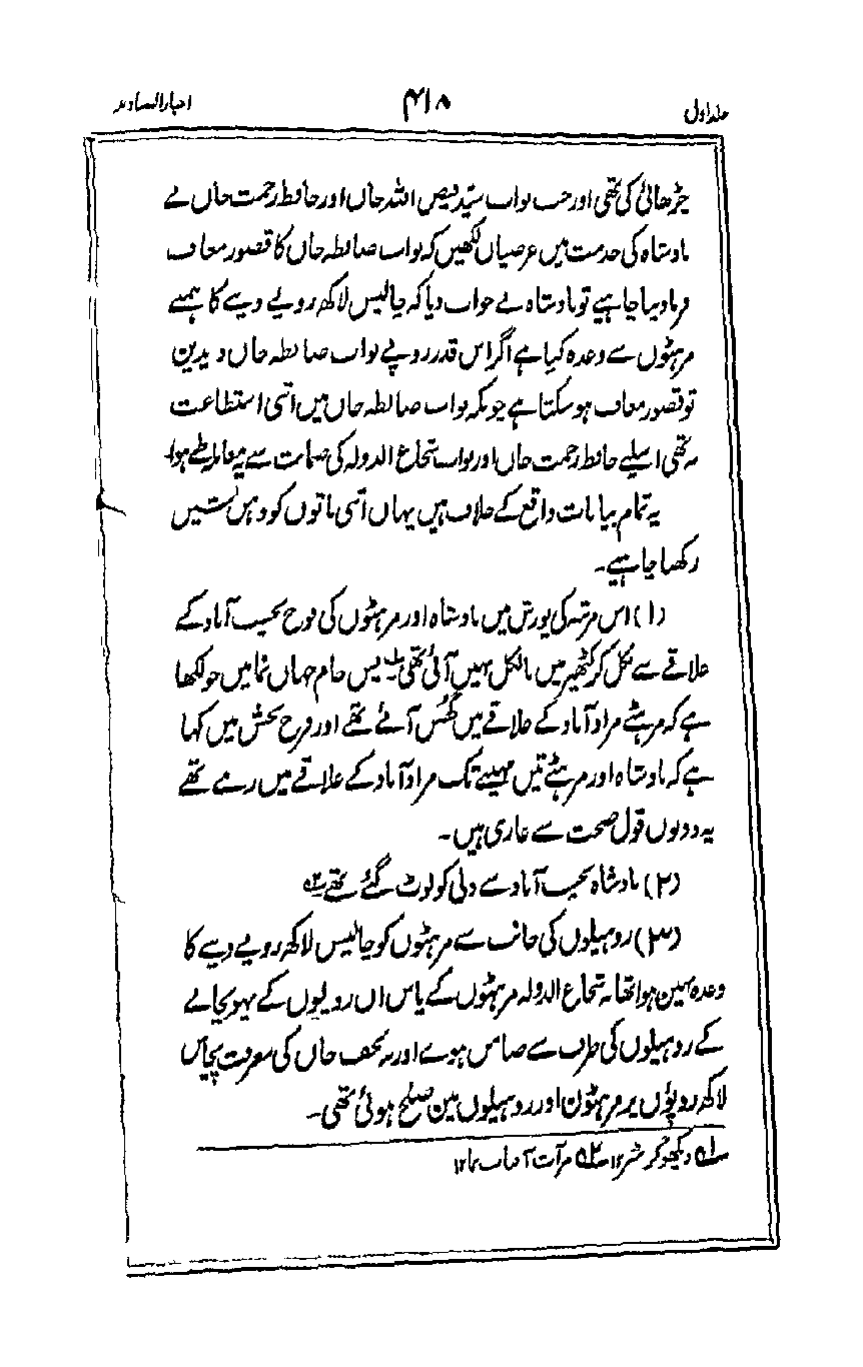 جلد اول ۴۱۸ اخبار الصنادید
چڑھائی کی تھی اور جب نواب سید فیض اللہ خاں اور حافظ رحمت خاں نے
بادشاہ کی خدمت میں عرضیاں لکھیں کہ نواب ضابطہ خاں کا قصور معاف
فرما دینا چاہیے تو بادشاہ نے جواب دیا کہ چالیس لاکھ روپے دینے کا ہمنے
مرہٹوں سے وعدہ کیا ہے اگر اس قدر روپے نواب ضابطہ خاں دیدین
تو قصور معاف ہو سکتا ہے چونکہ نواب ضابطہ خاں میں اتنی استطاعت
نہ تھی اسلیے حافظ رحمت خاں اور نواب شجاع الدولہ کی ضمانت سے یہ معاملہ طے ہوا
یہ تمام بیانات واقع کے خلاف ہیں یہاں اتنی باتوں کو ذہن نشین
رکھنا چاہیے۔
(۱) اس مرتبہ کی یورش میں بادشاہ اور مرہٹوں کی فوج نجیب آباد کے
علاقے سے نکل کر کٹھیر میں بالکل نہیں آئی تھی لہ پس جام جہاں نما میں جو لکھا
ہے کہ مرہٹے مراد آباد کے علاقے میں گھس آئے تھے اور فرح بخش میں کہا
ہے کہ بادشاہ اور مرہٹے تین مہینے تک مراد آباد کے علاقے میں رہے تھے
یہ دونوں قول صحت سے عاری ہیں۔
(۲) بادشاہ نجیب آباد سے دلی کو لوٹ گئے تھے ۲ہ
(۳) روہیلوں کی جانب سے مرہٹوں کو چالیس لاکھ روپے دینے کا
وعدہ نہین ہوا تھا نہ شجاع الدولہ مرہٹوں کے پاس ان روپیوں کے پہونچانے
کے روہیلوں کی طرف سے ضامن ہوے اور نہ نجف خاں کی معرفت پچاس
لاکھ روپوں پر مرہٹون اور روہیلوں مین صلح ہوئی تھی۔
لہ دیکھو گزٹیر ۱۲ ۲ہ مرآت آفتاب نما ۱۲